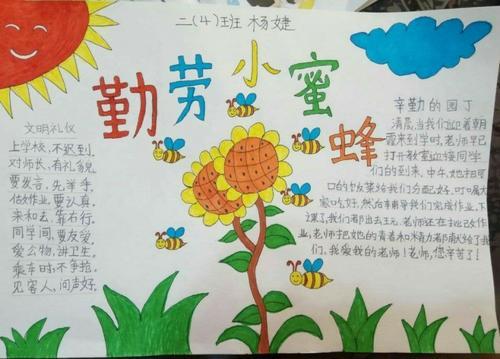 二(4)班 杨婕
勤劳小蜜蜂
文明礼仪
上学校,不迟到,
对师长,有礼貌,
要发言,先举手,
做作业,要认真,
来和去,靠右行,
同学间,要友爱,
爱公物,讲卫生,
乘车时,不争抢,
见客人,问声好,
辛勤的园丁
清晨,当我们迎着朝
霞来到学时,老师早已
打开教室迎接同学
们的到来,中午,她把可
口的饭菜给我们分配好,叮嘱大
家吃好,然后辅导我们完成作业,下
课了,我们都出去玩,老师还在批改作
业,老师把她的青春和精力都献给了我
们,我爱我的老师!老师,您辛苦了!